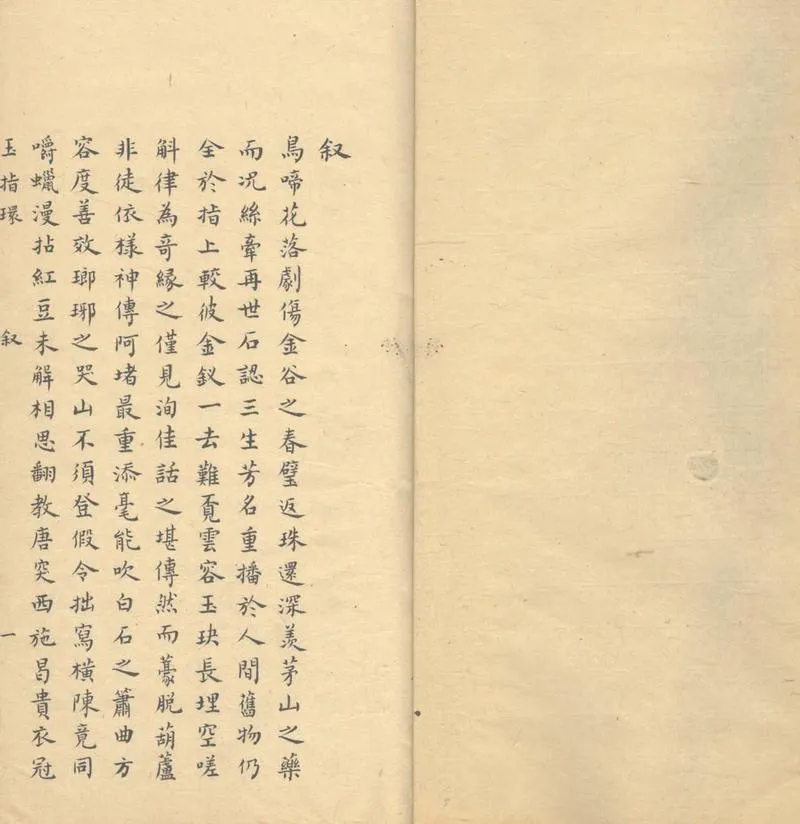 叙
鳥啼花落劇傷金谷之春璧返珠還深羨茅山之藥
而况絲牽再世石認三生芳名重播於人間舊物仍
全於指上較彼金釵一去難覔雲容玉玦長埋空嗟
斛律為奇緣之僅見洵佳話之堪傳然而藁脱葫蘆
非徒依様神傳阿堵最重添毫能吹白石之簫曲方
容度善效瑯琊之哭山不須登假令拙寫橫陳竟同
嚼蠟漫拈紅豆未解相思翻教唐突西施曷貴衣冠
玉指環 叙 一